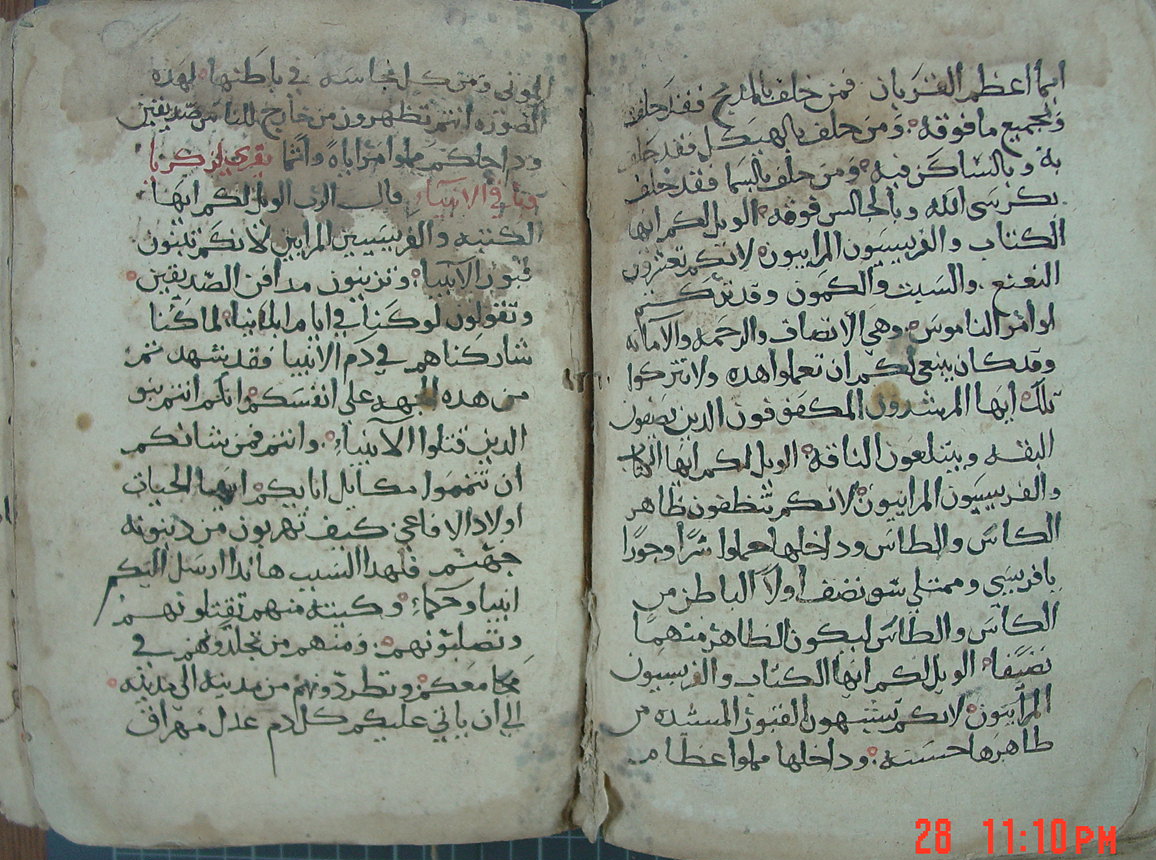 ايما اعظم القربان فمن حلف بالمدبح فقد حلف
وبجميع ما فوقه ومن حلف بالهيكل فقد حلف
به وبالساكن فيه ومن حلف بالسما فقد حلف
بكرسي الله وبالجالس فوقه الويل لكم ايها
الكتاب والفريسيون المراييون لانكم تعشرون
النعنع والسبت والكمون وقد تركتم
اوامر الناموس وهي الانصاف والرحمه والامانه
وقد كان ينبغي لكم ان تعملوا هده ولا تتركوا
تلك ايها المرشدون المكفوفون الدين يصفون
البقه ويبتلعون الناقه الويل لكم ايها الكتاب
والفريسيون المراييون لانكم تنظفون ظاهر
الكاس والطاس وداخلها مملوا شرا وجورا
يا فريسي وممتلي سو نضف اولا الباطن من
الكاس والطاس ليكون الظاهر منهما
نضيفا الويل لكم ايها الكتاب والفريسيون
المراييون لانكم تشبهون القبور المشيده من
ظاهرها حسنه وداخلها مملوا عظام
الموتى ومن كل نجاسه في باطنها لهده
الصوره انتم تظهرون من خارج للناس صديقين
وداخلكم مملوا مراياه واثما يقرى لزكريا
وباقي الانبياء قال الرب الويل لكم ايها
الكتبه والفريسيين المرايين لانكم تبنون
قبور الانبيا وتزينون مدافن الصديقين
وتقولون لو كنا في ايام ابائنا لما كنا
شاركناهم في دم الانبيا فقد شهدتم
من هده الجهه على انفسكم انكم انتم بنو
الدين قتلوا الانبياء وانتم فمن شانكم
ان تتمموا مكاييل ابايكم ايها الحيات
اولاد الافاعي كيف تهربون من دينونه
جهنم فلهدا السبب هاندا ارسل اليكم
انبيا وحكماء وكتبه منهم تقتلونهم
وتصلبونهم ومنهم من تجلدونهم في
مجامعكم وتطردونهم من مدينه الى مدينه
الي ان ياتي عليكم كل دم عدل مهراق
28 11:10 PM